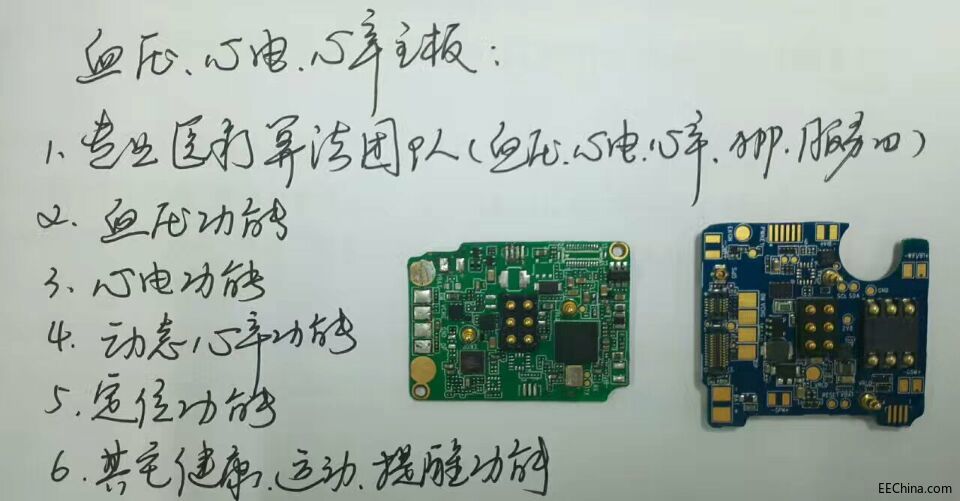 血压、心电、心率主板:
1、专业医疗算法团队(血压、心电、心率、APP、服务口)
2、血压功能
3、心电功能
4、动态心率功能
5、定位功能
6、其它健康、运动、提醒功能
SCL SDA
GND
2V8
GPS
RESET
EEChina.com